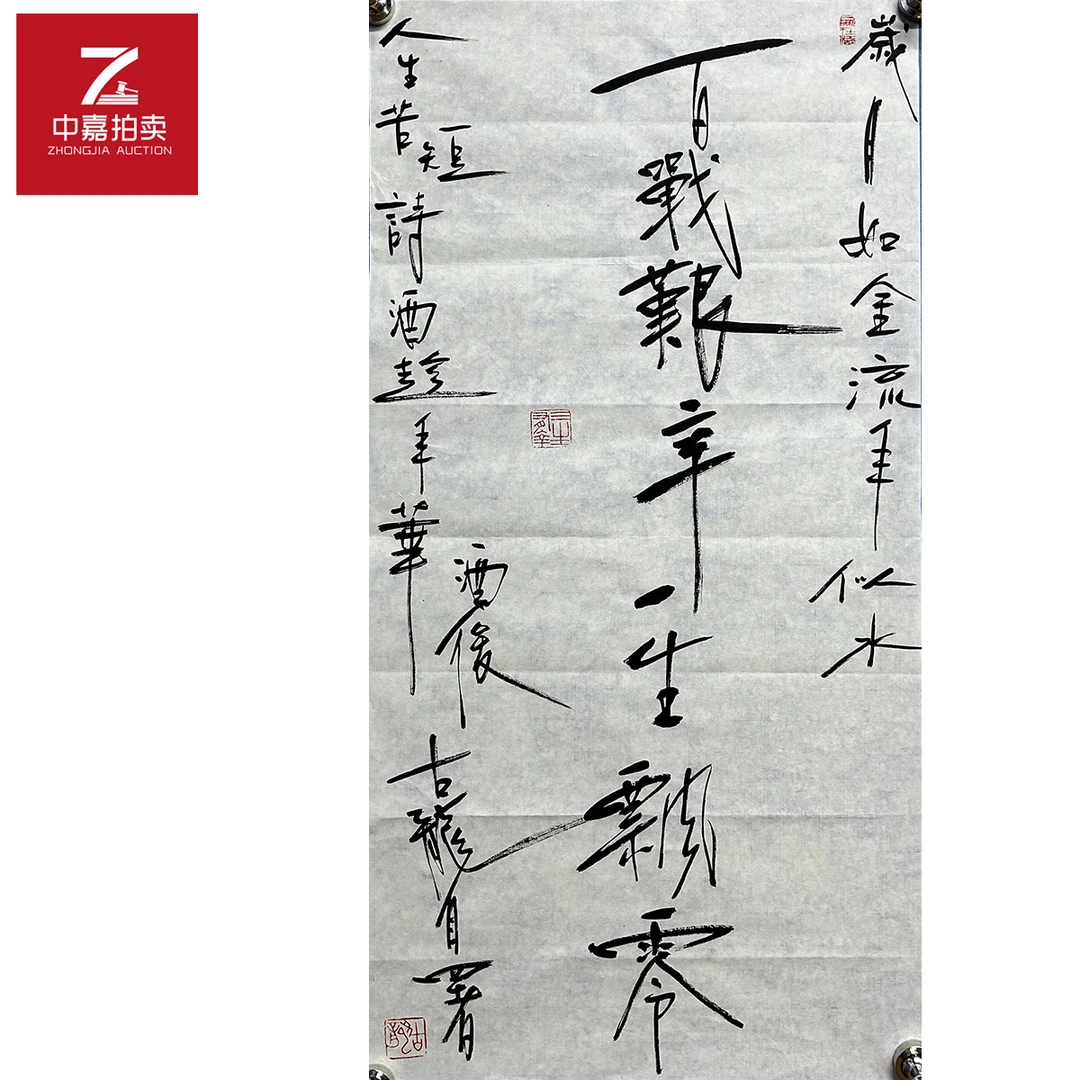 中嘉拍卖
ZHONGJIA AUCTION
歲月如金流年似水
百戰艱辛一生飄零
人生苦短詩酒趁年華
酒後
古龍自署